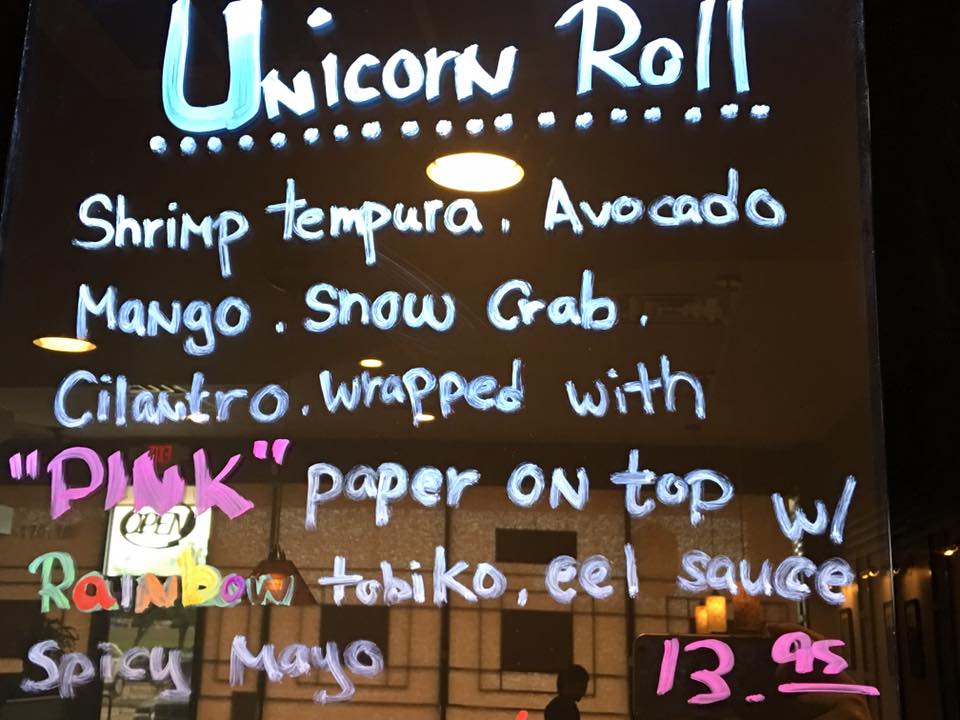 Unicorn Roll
Shrimp tempura. Avocado
Mango. Snow Crab.
Cilantro. wrapped with
"PINK" paper on top w/
OPEN
Rainbow tobiko, eel sauce
Spicy Mayo 13.95